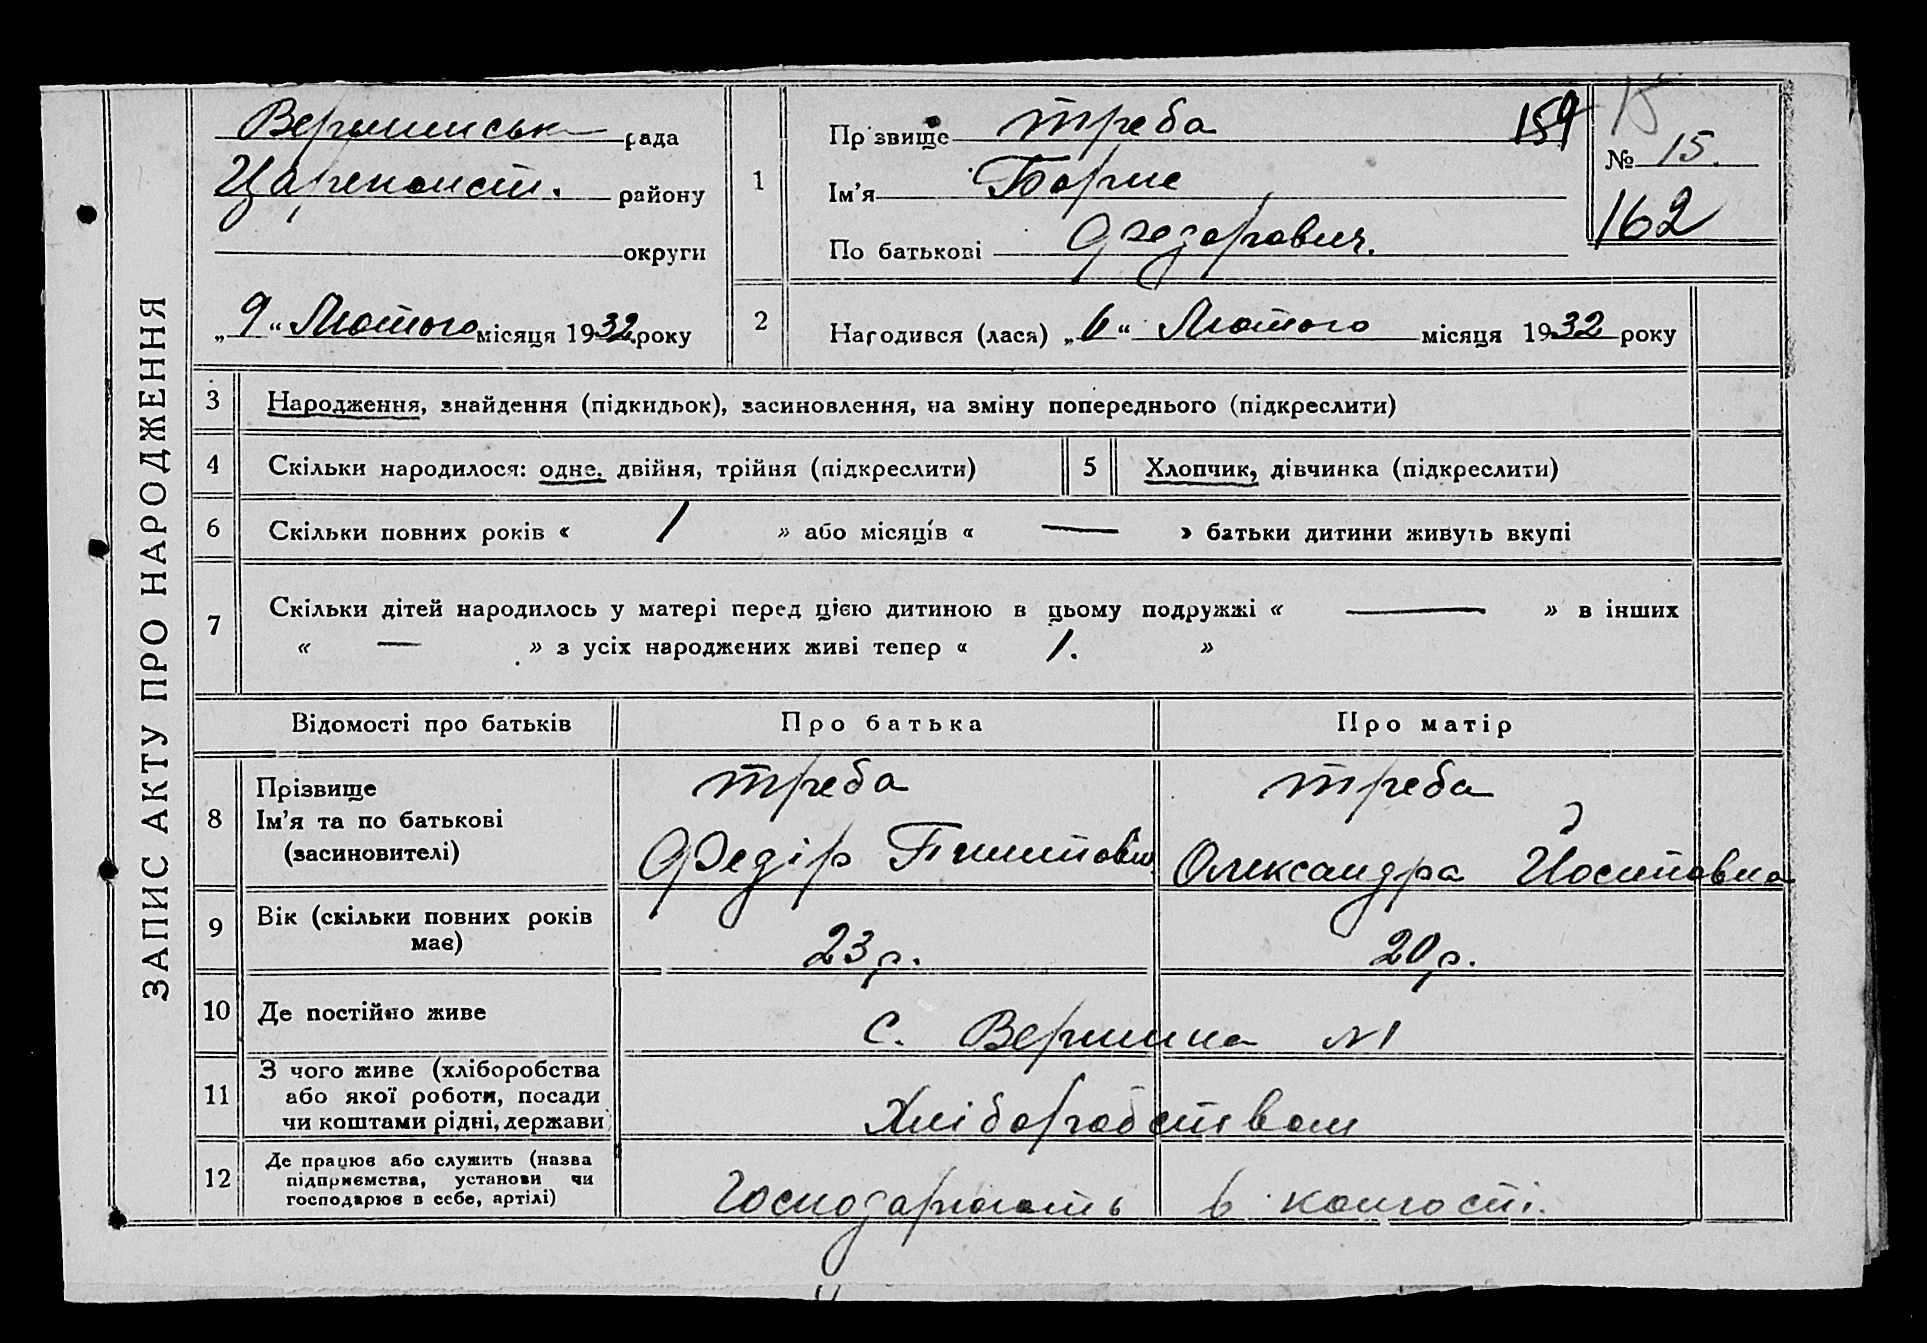 ЗАПИС АКТУ ПРО НАРОДЖЕННЯ
Вершинська рада
Цареконст. району
округи
„9“ Лютого місяця 1932 року
1 Прізвище Треба 159
Ім’я Борис
По батькові Федорович.
15
№ 15.
162
2 Народився (лася) „6“ Лютого місяця 1932 року
3 Народження, знайдення (підкидьок), засиновлення, на зміну попереднього (підкреслити)
4 Скільки народилося: одне, двійня, трійня (підкреслити) 5 Хлопчик, дівчинка (підкреслити)
6 Скільки повних років « 1 » або місяців « — » батьки дитини живуть вкупі
7 Скільки дітей народилось у матері перед цією дитиною в цьому подружжі « — » в інших
« — » з усіх народжених живі тепер « 1. »
Відомості про батьків Про батька Про матір
8 Прізвище Треба Треба
Ім’я та по батькові Федір Олександра Йосиповна
(засиновителі)
9 Вік (скільки повних років має) 23 р. 20 р.
10 Де постійно живе с. Вершина №1
11 З чого живе (хліборобства
або якої роботи, посади
чи коштами рідні, держави Хліборобством
12 Де працює або служить (назва
підприємства, установи чи
господарює в себе, артілі) Господарюють в колгоспі.